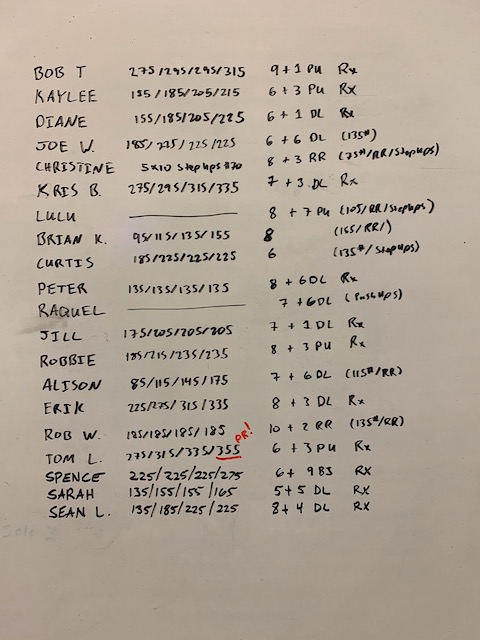 BOB T 275/295/295/315 9 + 1 PU Rx
KAYLEE 155/185/205/215 6 + 3 PU Rx
DIANE 155/185/205/225 6 + 1 DL Rx
JOE W. 185/225/225/225 6 + 6 DL (135#)
CHRISTINE 5x10 Step ups #20 8 + 3 RR (75#/RR/Stepups)
KRIS B. 275/295/315/335 7 + 3 DL Rx
LULU 8 + 7 PU (105/RR/Stepups)
BRIAN K. 95/115/135/155 8 (155/RR/)
CURTIS 185/225/225/225 6 (135#/Stepups)
PETER 135/135/135/135 8 + 6 DL Rx
RAQUEL 7 + 6 DL (Pushups)
JILL 175/205/205/205 7 + 1 DL Rx
ROBBIE 185/215/235/235 8 + 3 PU Rx
ALISON 85/115/145/175 7 + 6 DL (115#/RR)
ERIK 225/275/315/335 8 + 3 DL Rx
ROB W. 185/185/185/185 10 + 2 RR (135#/RR)
TOM L. 275/315/335/355 PR! 6 + 3 PU Rx
SPENCE 225/225/225/275 6 + 9 BJ Rx
SARAH 135/155/155/165 5 + 5 DL Rx
SEAN L. 135/185/225/225 8 + 4 DL Rx